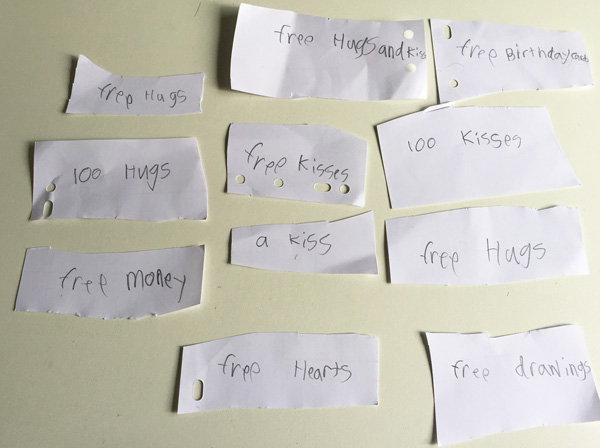 free Hugs
free Hugs and Kiss
free Birthday cards
100 Hugs
free Kisses
100 Kisses
free money
a Kiss
free Hugs
free Hearts
free drawings